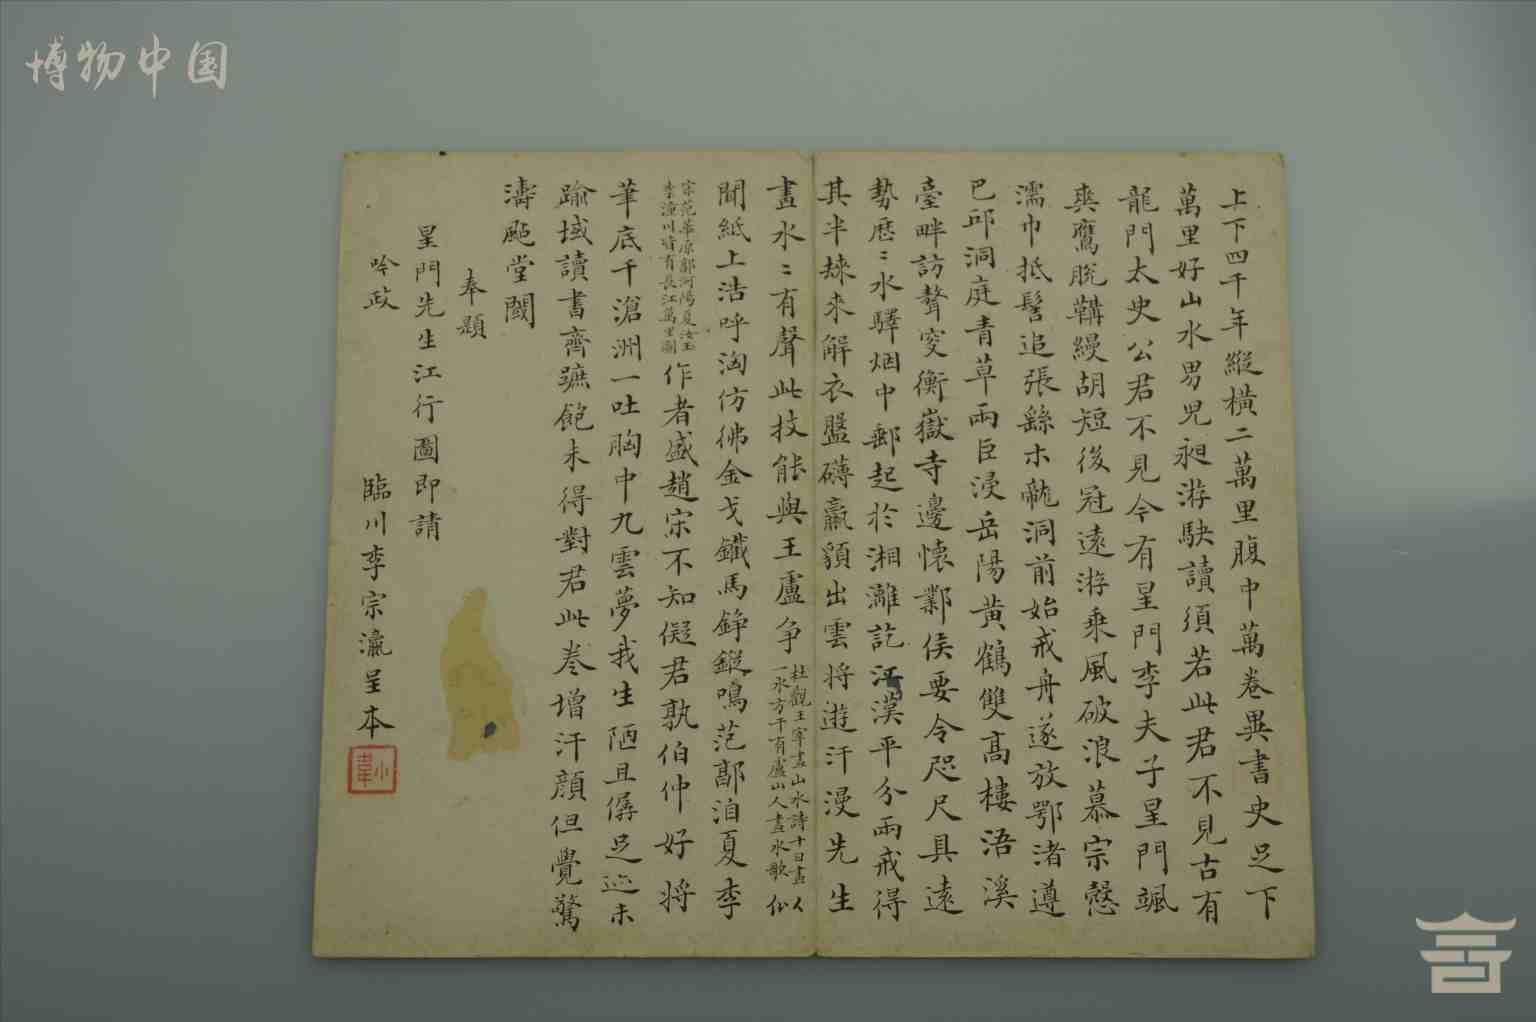 博物中国
上下四千年縱橫二萬里腹中萬卷異書史足下
萬里好山水男兒昶游駃讀須若此君不見古有
龍門太史公君不見今有星門李夫子星門颯
爽鷹脫鞲縵胡短後冠遠游乘風破浪慕宗慤
濡巾抵髻追張繇朩龍洞前始戒舟遂放鄂渚遵
巴邱洞庭青草兩臣浸岳陽黃鶴雙高樓浯溪
臺畔訪聱叟衡嶽寺邊懷鄴侯要令咫尺具遠
勢歷〻水驛烟中郵起於湘灕訖江漢平分兩戒得
其半竦來解衣盤礴臝貌出雲將遊汗漫先生
畫水〻有聲此技能與王盧爭 杜觀王宰畫山水詩十日畫一水方干有盧山人畫水歌 似
聞紙上浩呼洶仿彿金戈鐵馬錚鏦鳴范鄗洎夏李
宋范華原郭河陽夏汝玉李潼川皆有長江萬里圖 作者盛趙宋不知儗君孰伯仲好將
筆底千滄洲一吐胸中九雲夢我生陋且孱足迹未
踰域讀書齊蹠飽未得對君此卷增汗顏但覺驚
濤颭堂闑
奉題
星門先生江行圖即請
吟政
臨川李宗瀛呈本
小韋